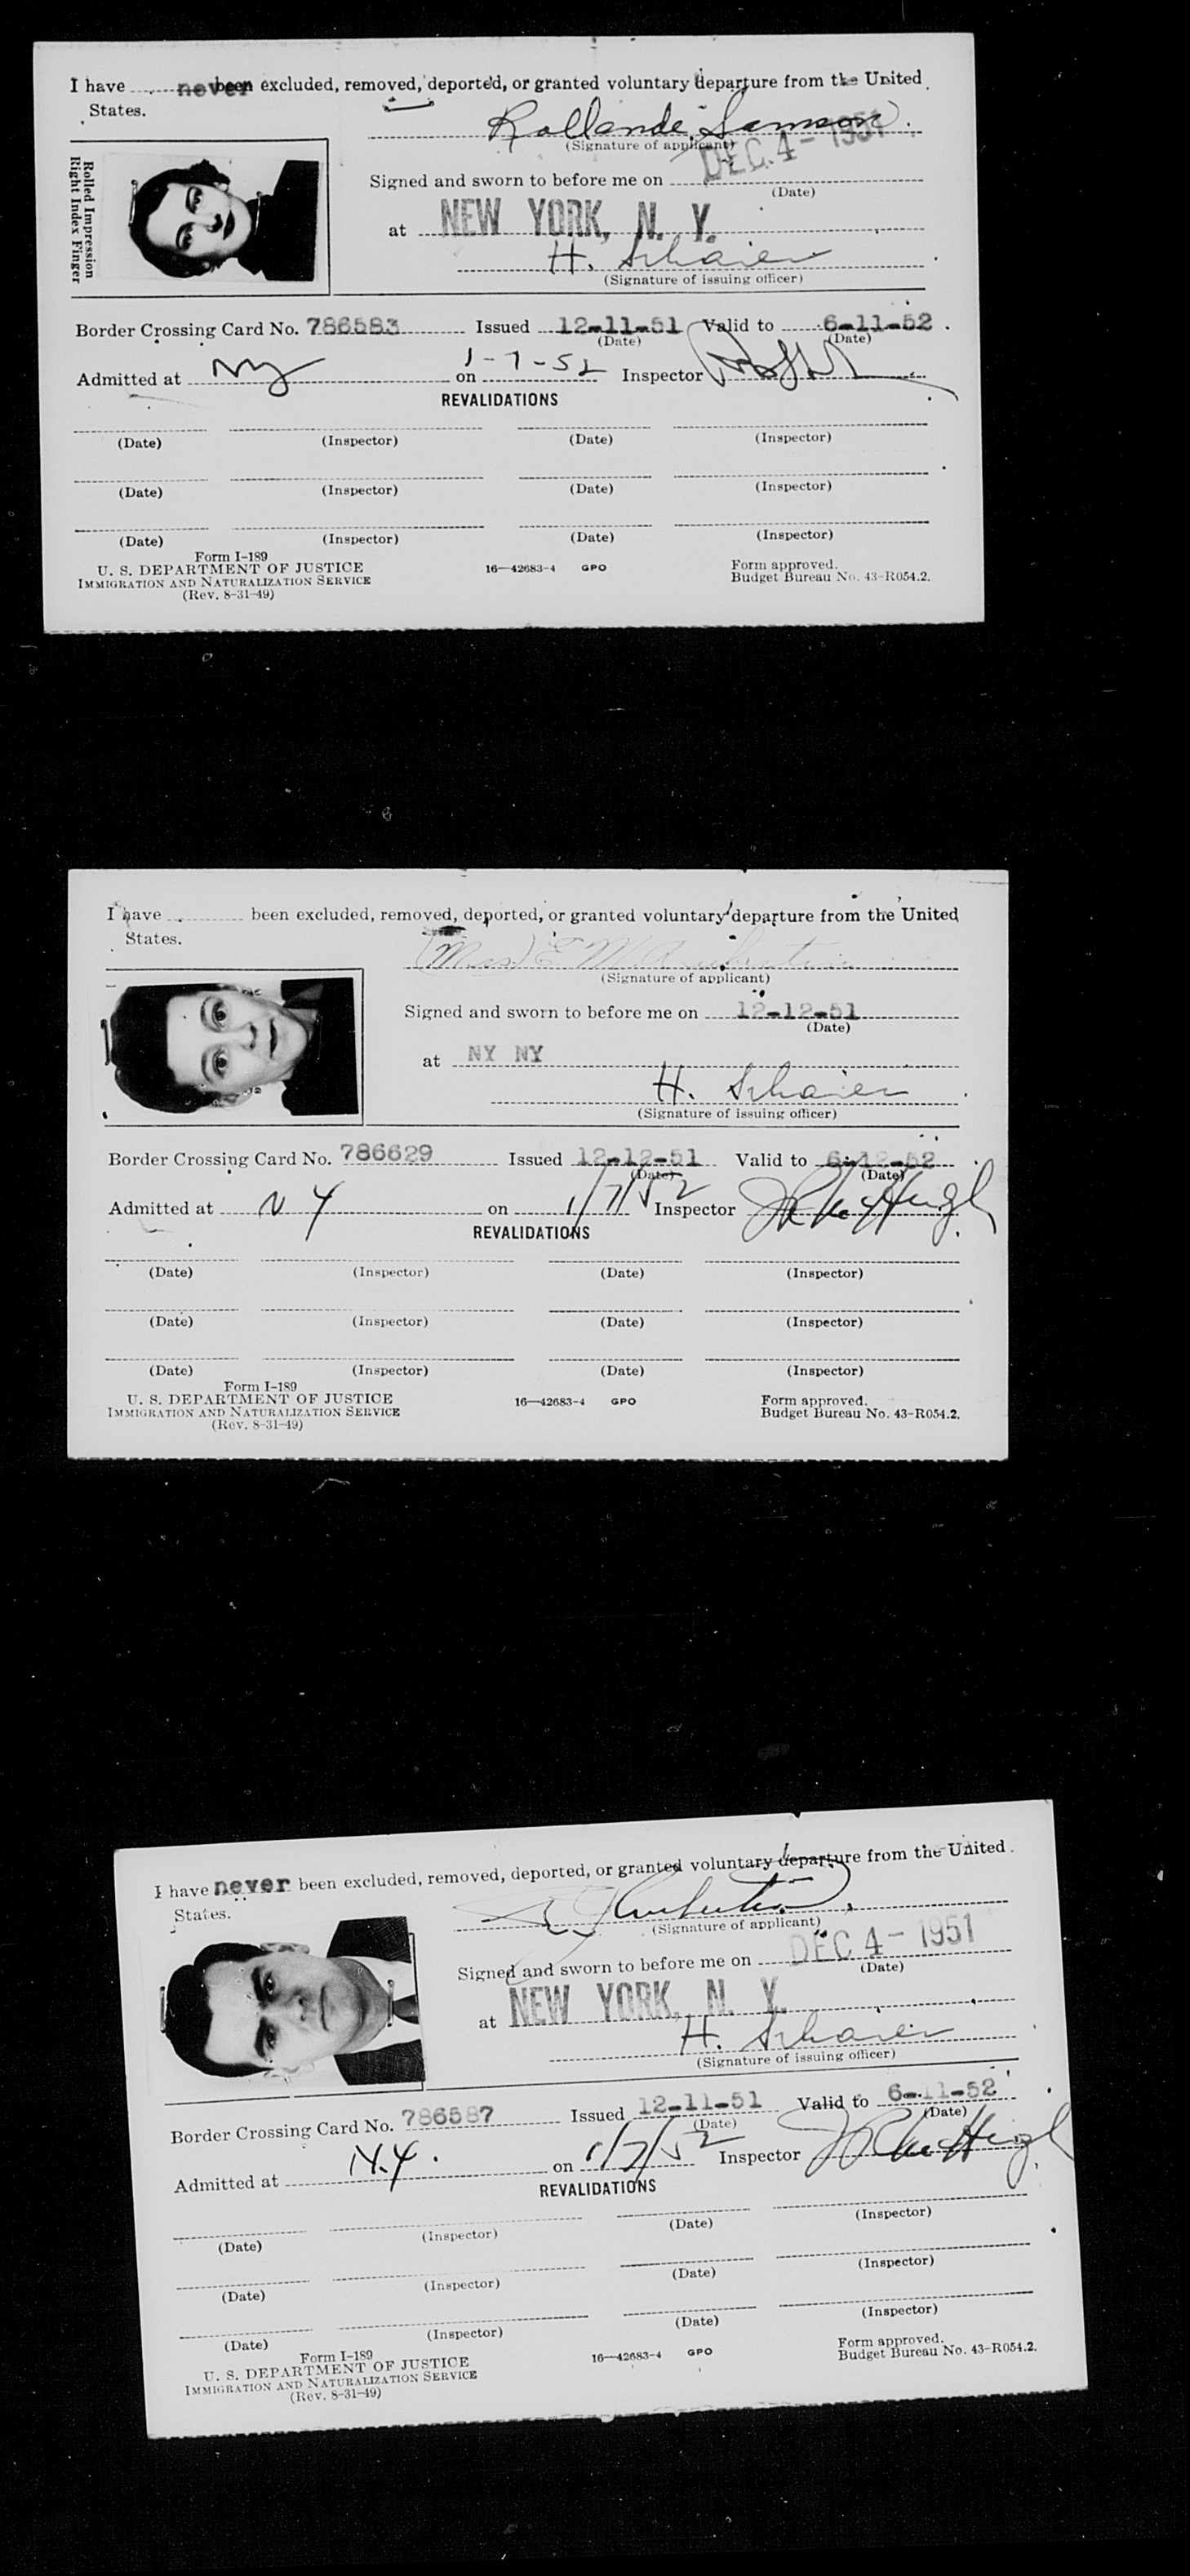 I have never been excluded, removed, deported, or granted voluntary departure from the United
States.
Rollande Samson
(Signature of applicant)
DEC. 4 - 1951
Signed and sworn to before me on
(Date)
Rolled Impression
Right Index Finger
at NEW YORK, N. Y.
H. Schaier
(Signature of issuing officer)
Border Crossing Card No. 786583 Issued 12-11-51 Valid to 6-11-52
(Date) (Date)
Admitted at NY on 1-7-52 Inspector
REVALIDATIONS
(Date) (Inspector) (Date) (Inspector)
(Date) (Inspector) (Date) (Inspector)
(Date) (Inspector) (Date) (Inspector)
Form I-189
U. S. DEPARTMENT OF JUSTICE 16—42683-4 GPO Form approved.
IMMIGRATION AND NATURALIZATION SERVICE Budget Bureau No. 43-R054.2.
(Rev. 8-31-49)
I have been excluded, removed, deported, or granted voluntary departure from the United
States.
(Mrs) E M
(Signature of applicant)
Signed and sworn to before me on 12-12-51
(Date)
at NY NY
H. Schaier
(Signature of issuing officer)
Border Crossing Card No. 786629 Issued 12-12-51 Valid to 6-12-52
(Date) (Date)
Admitted at N Y on 1/7/52 Inspector
REVALIDATIONS
(Date) (Inspector) (Date) (Inspector)
(Date) (Inspector) (Date) (Inspector)
(Date) (Inspector) (Date) (Inspector)
Form I-189
U. S. DEPARTMENT OF JUSTICE 16—42683-4 GPO Form approved.
IMMIGRATION AND NATURALIZATION SERVICE Budget Bureau No. 43-R054.2.
(Rev. 8-31-49)
I have never been excluded, removed, deported, or granted voluntary departure from the United
States.
(Signature of applicant)
Signed and sworn to before me on DEC 4 - 1951
(Date)
at NEW YORK, N. Y.
H. Schaier
(Signature of issuing officer)
Border Crossing Card No. 786587 Issued 12-11-51 Valid to 6-11-52
(Date) (Date)
Admitted at N.Y. on 1/7/52 Inspector
REVALIDATIONS
(Date) (Inspector) (Date) (Inspector)
(Date) (Inspector) (Date) (Inspector)
(Date) (Inspector) (Date) (Inspector)
Form I-189
U. S. DEPARTMENT OF JUSTICE 16—42683-4 GPO Form approved.
IMMIGRATION AND NATURALIZATION SERVICE Budget Bureau No. 43-R054.2.
(Rev. 8-31-49)